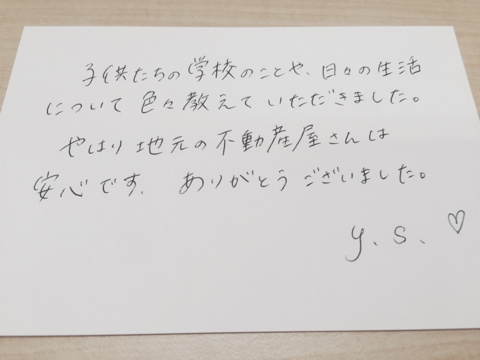 子供たちの学校のことや、日々の生活
について色々教えていただきました。
やはり地元の不動産屋さんは
安心です. ありがとうございました。
y. s. ♡